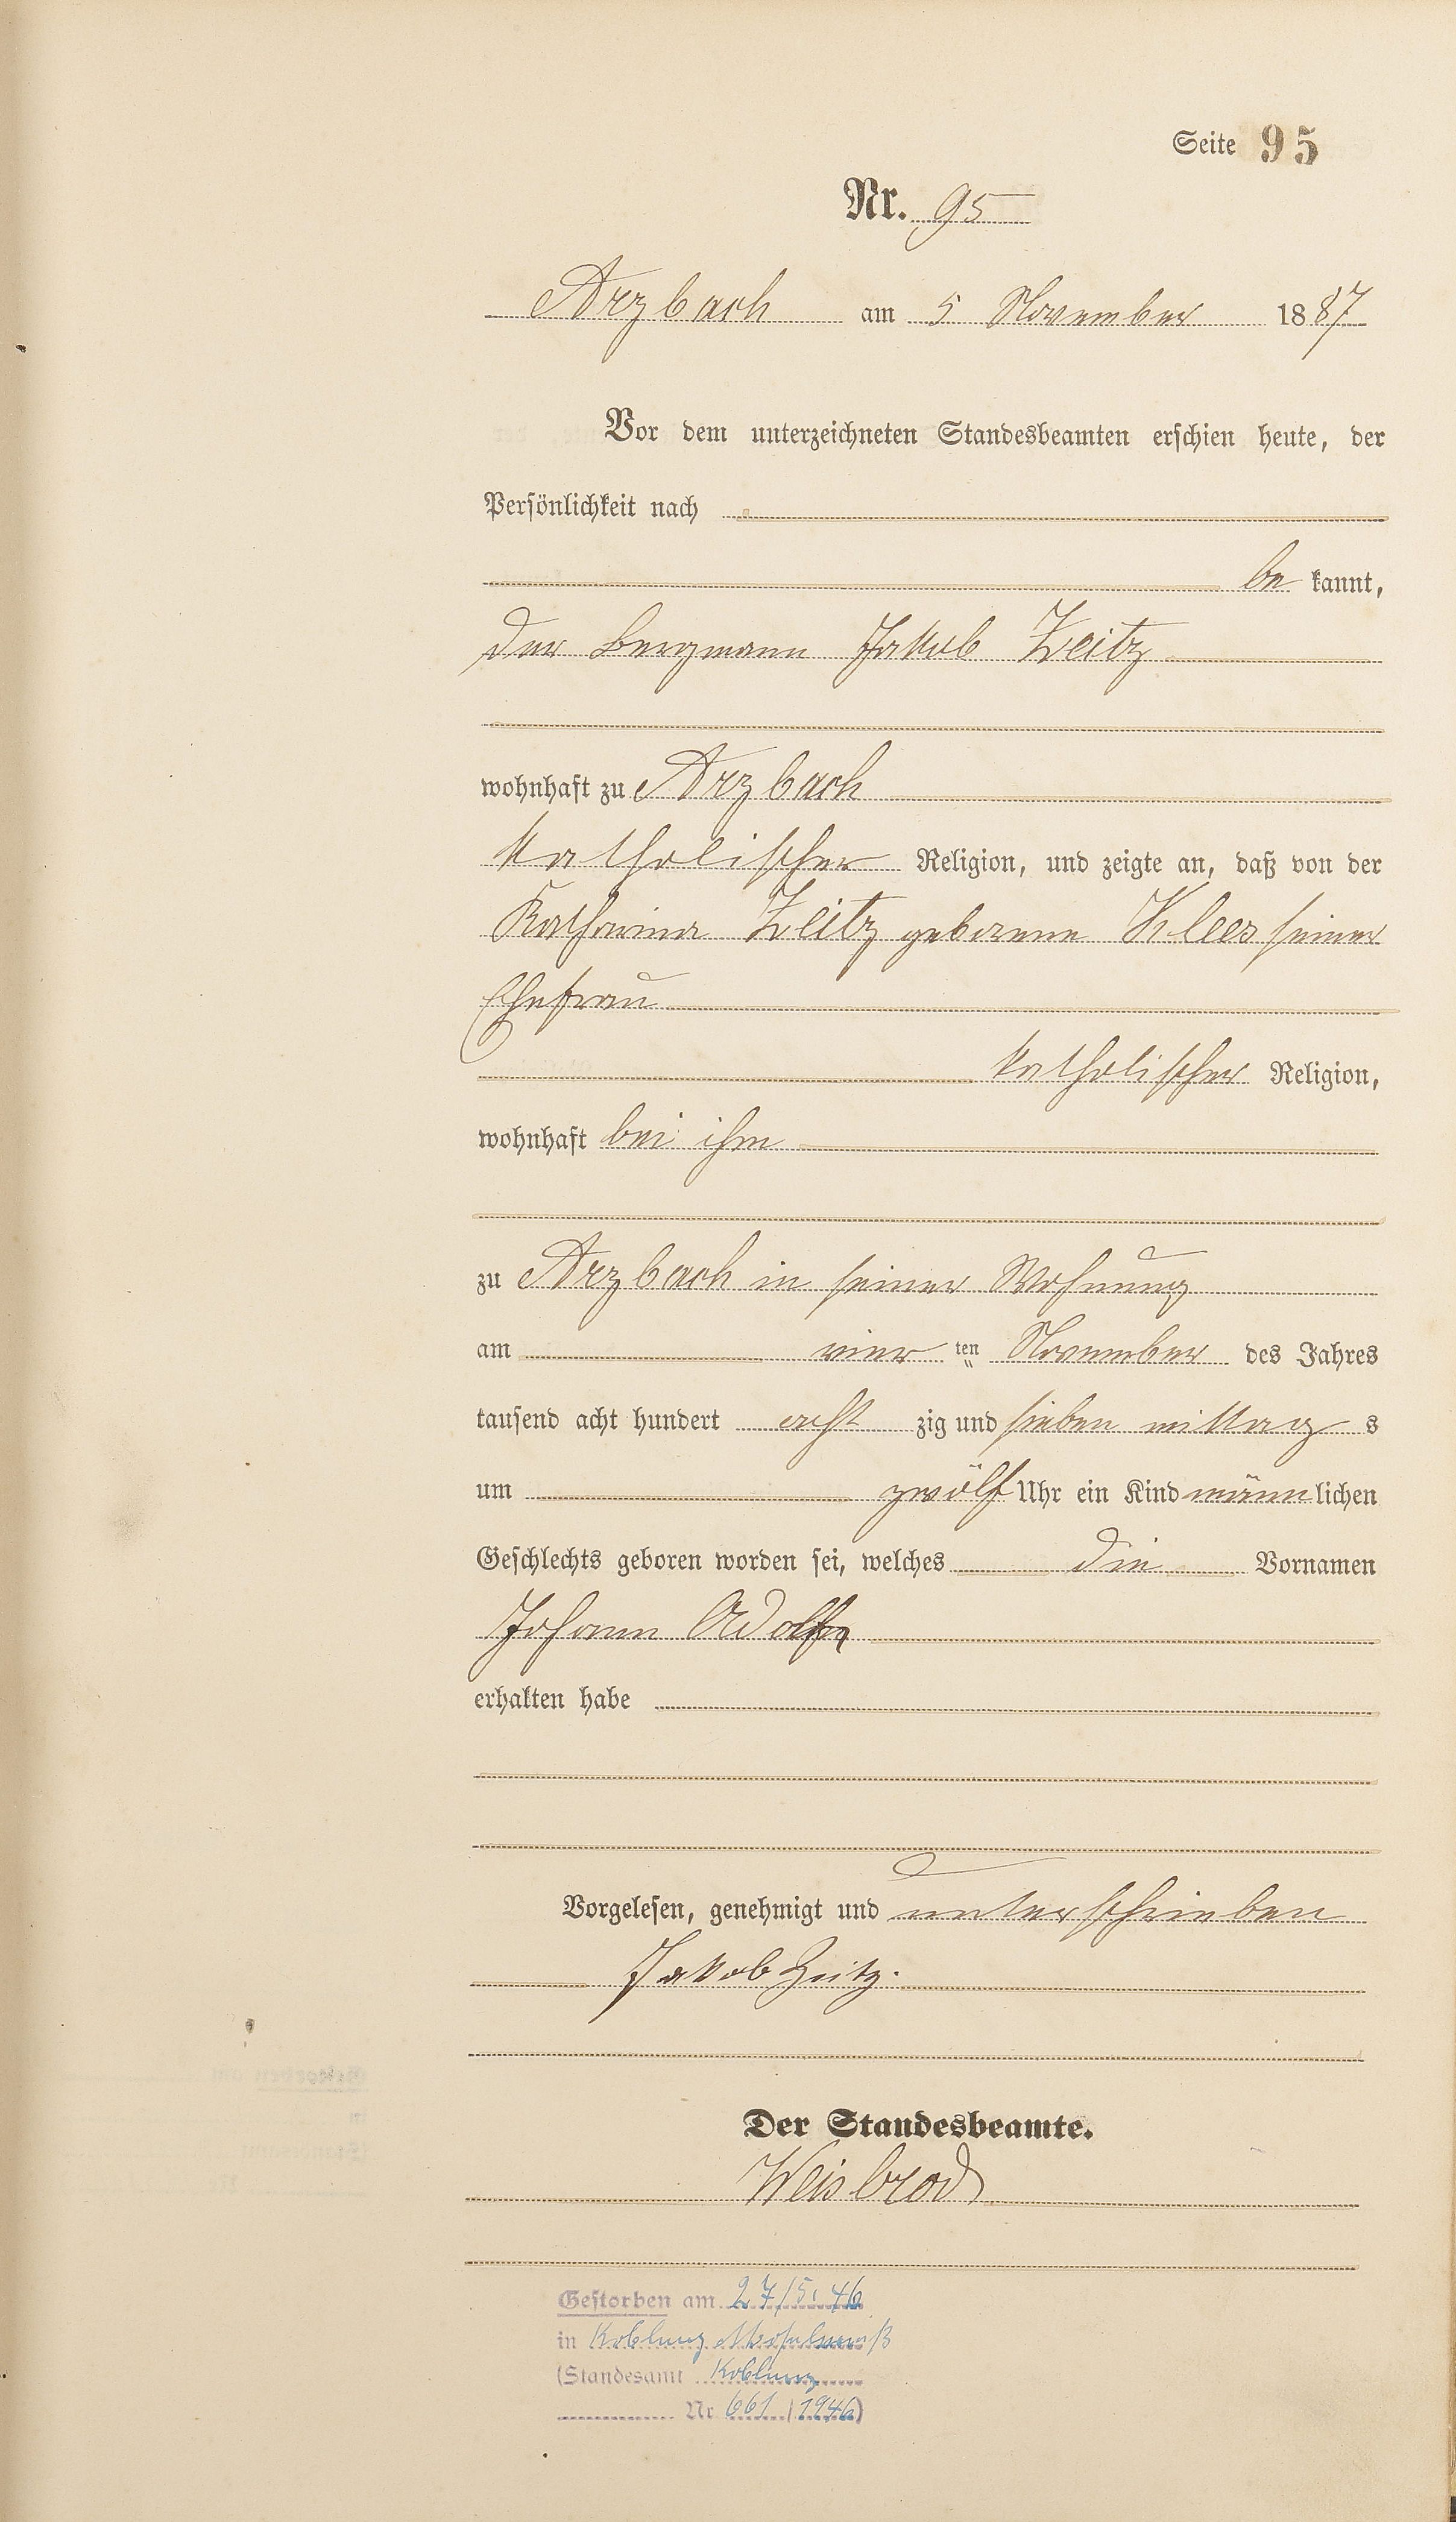 Seite 95
Nr. 95
Arzbach am 5 November 1887
Vor dem unterzeichneten Standesbeamten erschien heute, der
Persönlichkeit nach
be kannt,
der Bergmann Jakob Zeitz
wohnhaft zu Arzbach
katholischer Religion, und zeigte an, daß von der
Katharina Zeitz geborene Klees seiner
Ehefrau
katholischer Religion,
wohnhaft bei ihm
zu Arzbach in seiner Wohnung
am vier ten November des Jahres
tausend acht hundert acht zig und sieben mittag s
um zwölf Uhr ein Kind männlichen
Geschlechts geboren worden sei, welches die Vornamen
Johann Adolf
erhalten habe
Vorgelesen, genehmigt und unterschrieben
Jakob Zeitz.
Der Standesbeamte.
Weisbrod
Gestorben am 27/5.46
in Koblenz Moselweiß
(Standesamt Koblenz
Nr 661/1946)